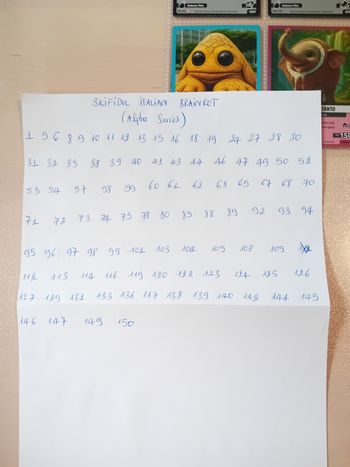 SKIFIDOL ITALIAN BRAINROT
(Alpha Series)
1 5 6 8 9 10 11 12 13 15 16 18 19 24 27 28 30
31 32 35 38 39 40 41 43 44 46 47 49 50 52
53 54 57 58 59 60 61 62 63 65 67 68 70
71 72 73 74 75 78 80 85 88 89 92 93 94
95 96 97 98 99 101 103 104 105 108 109
112 113 114 116 119 120 122 123 124 125 126
127 129 131 133 136 137 138 139 140 142 144 145
146 147 149 150